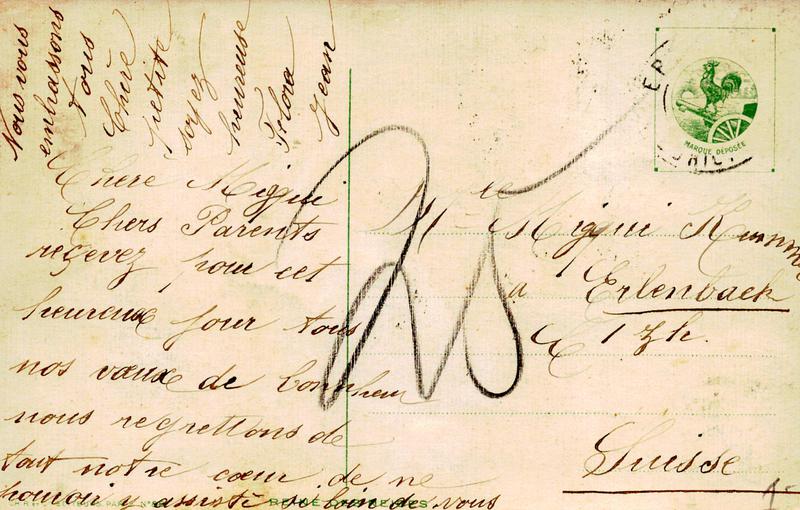 Nous vous
embrassons
Tous
Chère
petite
soyez
heureuse
Flora
Jean
Chere Miggui
Chers Parents
reçevez pour cet
heureux jour tous
nos vœux de bonheur
nous regrettons de
tout notre cœur de ne
pouvoir y assisté si loin de vous
MARQUE DÉPOSÉE
25
Mlle Miggui
a Erlenback
Ct Zh.
Suisse